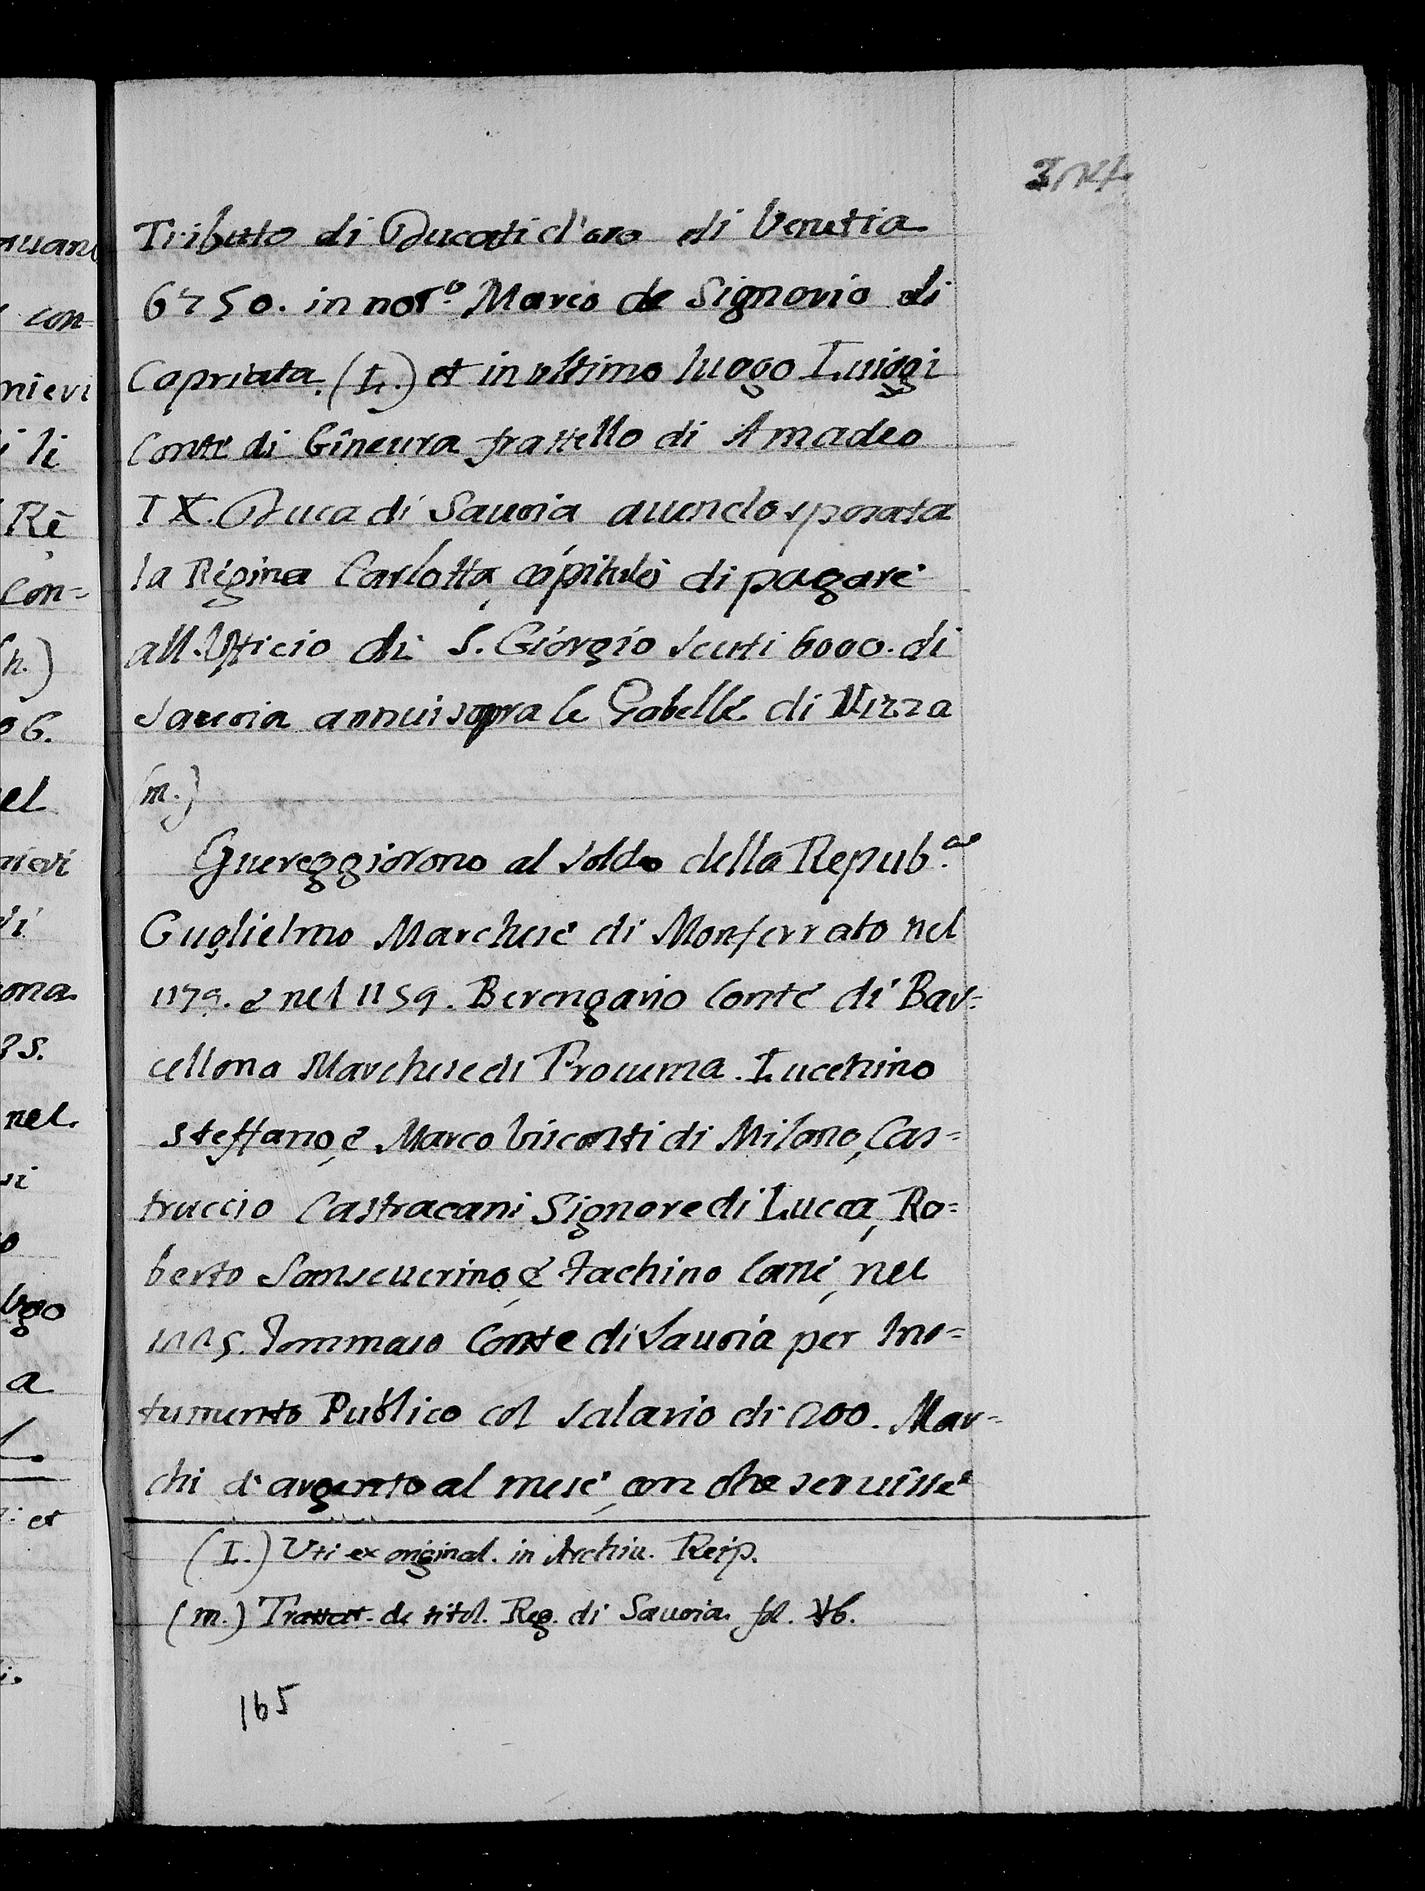 Tributo di Ducati d'oro di Venetia
6750. in not.º Marco de Signorio di
Capriata. (L.) et in ultimo luogo Luiggi
Conte di Gineura frattello di Amadeo
IX. Duca di Sauoia auendo sposata
la Regina Carlotta, capitulò di pagare
all Ufficio di S. Giorgio scuti 6000. di
Sauoia annui sopra le Gabelle di Nizza
(m.)
Guereggiorono al soldo della Repub.ca
Guglielmo Marchese di Monferrato nel
1179. e nel 1159. Berengario Conte di Bar=
cellona Marchese di Prouenza. Luchino
Steffano, e Marco Visconti di Milano, Cas=
truccio Castracani Signore di Lucca, Ro=
berto Sanseuerino, e Fachino Cane, nel
Tommaso Conte di Sauoia per Ins=
tumento Publico col salario di 200. Mar=
chi d'argento al mese, con che seruisse
(L.) Uti ex original. in Archiu. Reip.
(m.) Trattat. de titol. Reg. di Sauoia. fol.
165
nuan
con=
nieui
li
Rè
Con=
(h.)
06.
el
nieui
di
ona
nel
si
o
a
et